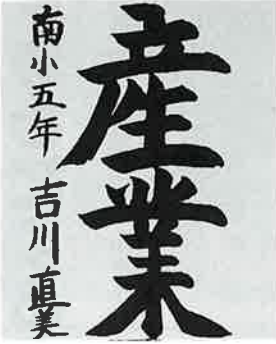 産業
南小五年 吉川直美